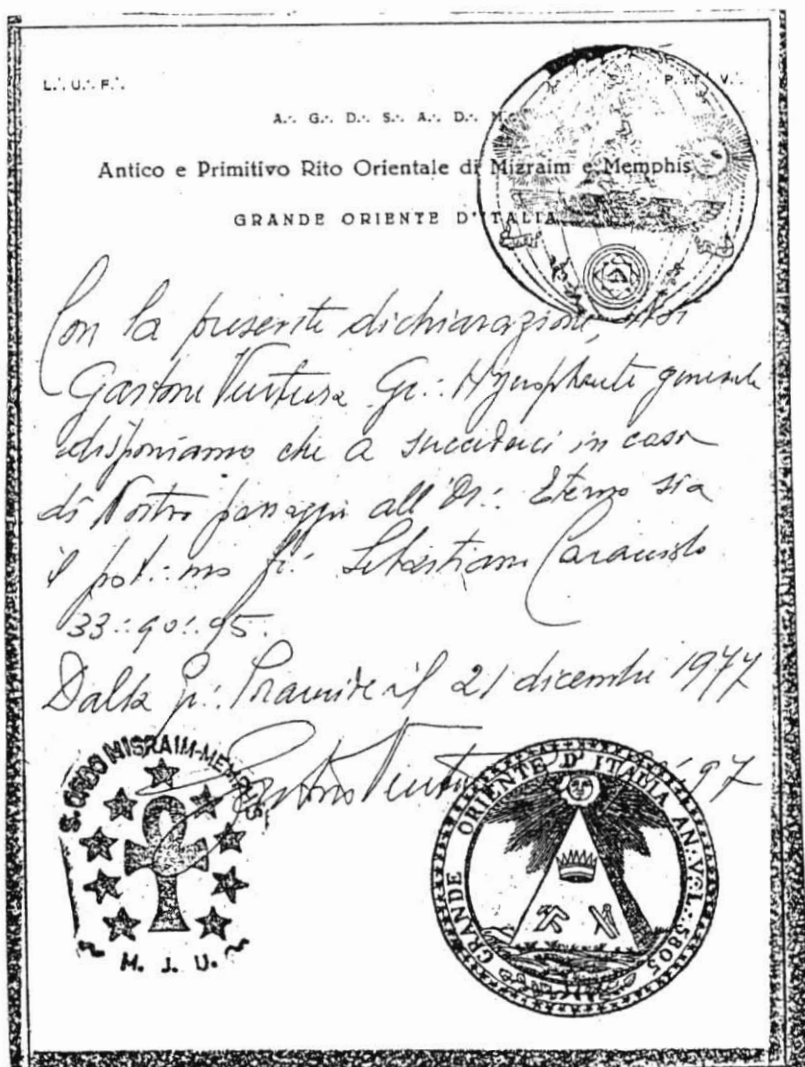 L∴ U∴ F∴
P∴ T∴ V∴
A∴ G∴ D∴ S∴ A∴ D∴ M∴
Antico e Primitivo Rito Orientale di Mizraim e Memphis
GRANDE ORIENTE D'ITALIA
Con la presente dichiarazione, Noi
Gastone Ventura Gr∴ Hyerophante generale
disponiamo che a succederci in caso
di Nostro passaggio all'Or∴ Eterno sia
il pot∴mo fr∴ Sebastiano Caracciolo
33∴90∴95.
Dalla Gr∴ Piramide il 21 dicembre 1977
Gastone Ventura 97
S. ORDO MISRAIM-MEMPHIS
M. J. U.
GRANDE ORIENTE D'ITALIA AN∴ V∴ L∴ 5805